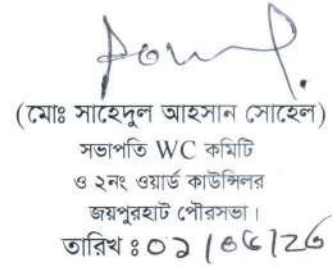 (মোঃ সাহেদুল আহসান সোহেল)
সভাপতি WC কমিটি
ও ২নং ওয়ার্ড কাউন্সিলর
জয়পুরহাট পৌরসভা।
তারিখ ঃ